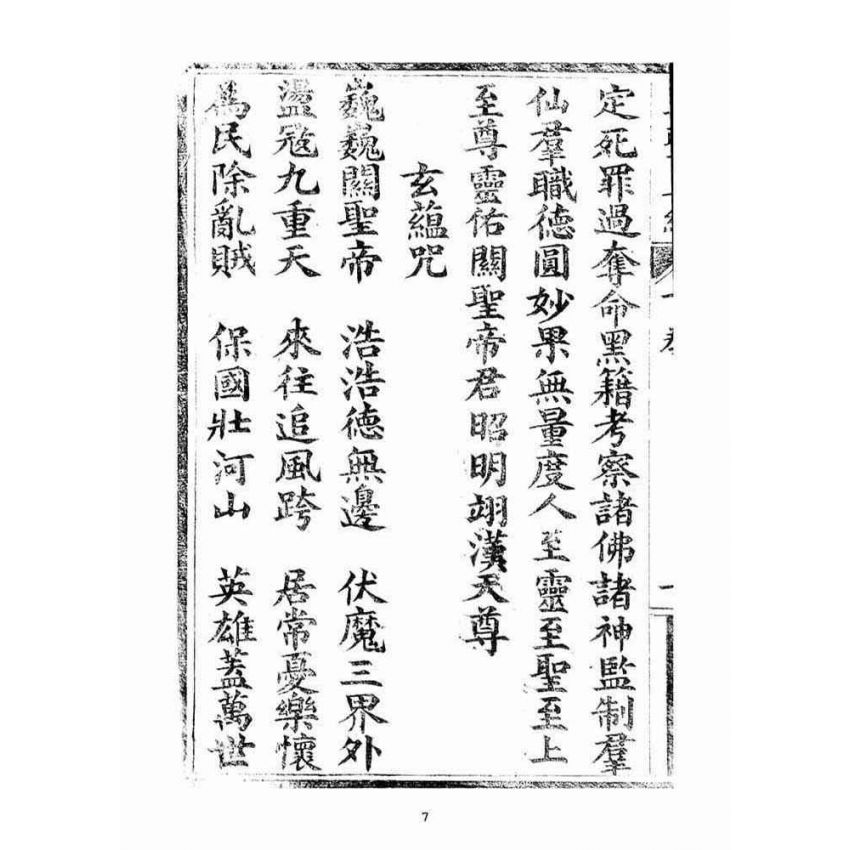 定死罪過奪命黑籍考察諸佛諸神監制羣
仙羣職德圓妙果無量度人至靈至聖至上
至尊靈佑關聖帝君昭明翊漢天尊
玄蘊咒
巍巍關聖帝 浩浩德無邊 伏魔三界外
盪寇九重天 來往追風跨 居常憂樂懷
為民除亂賊 保國壯河山 英雄蓋萬世
7